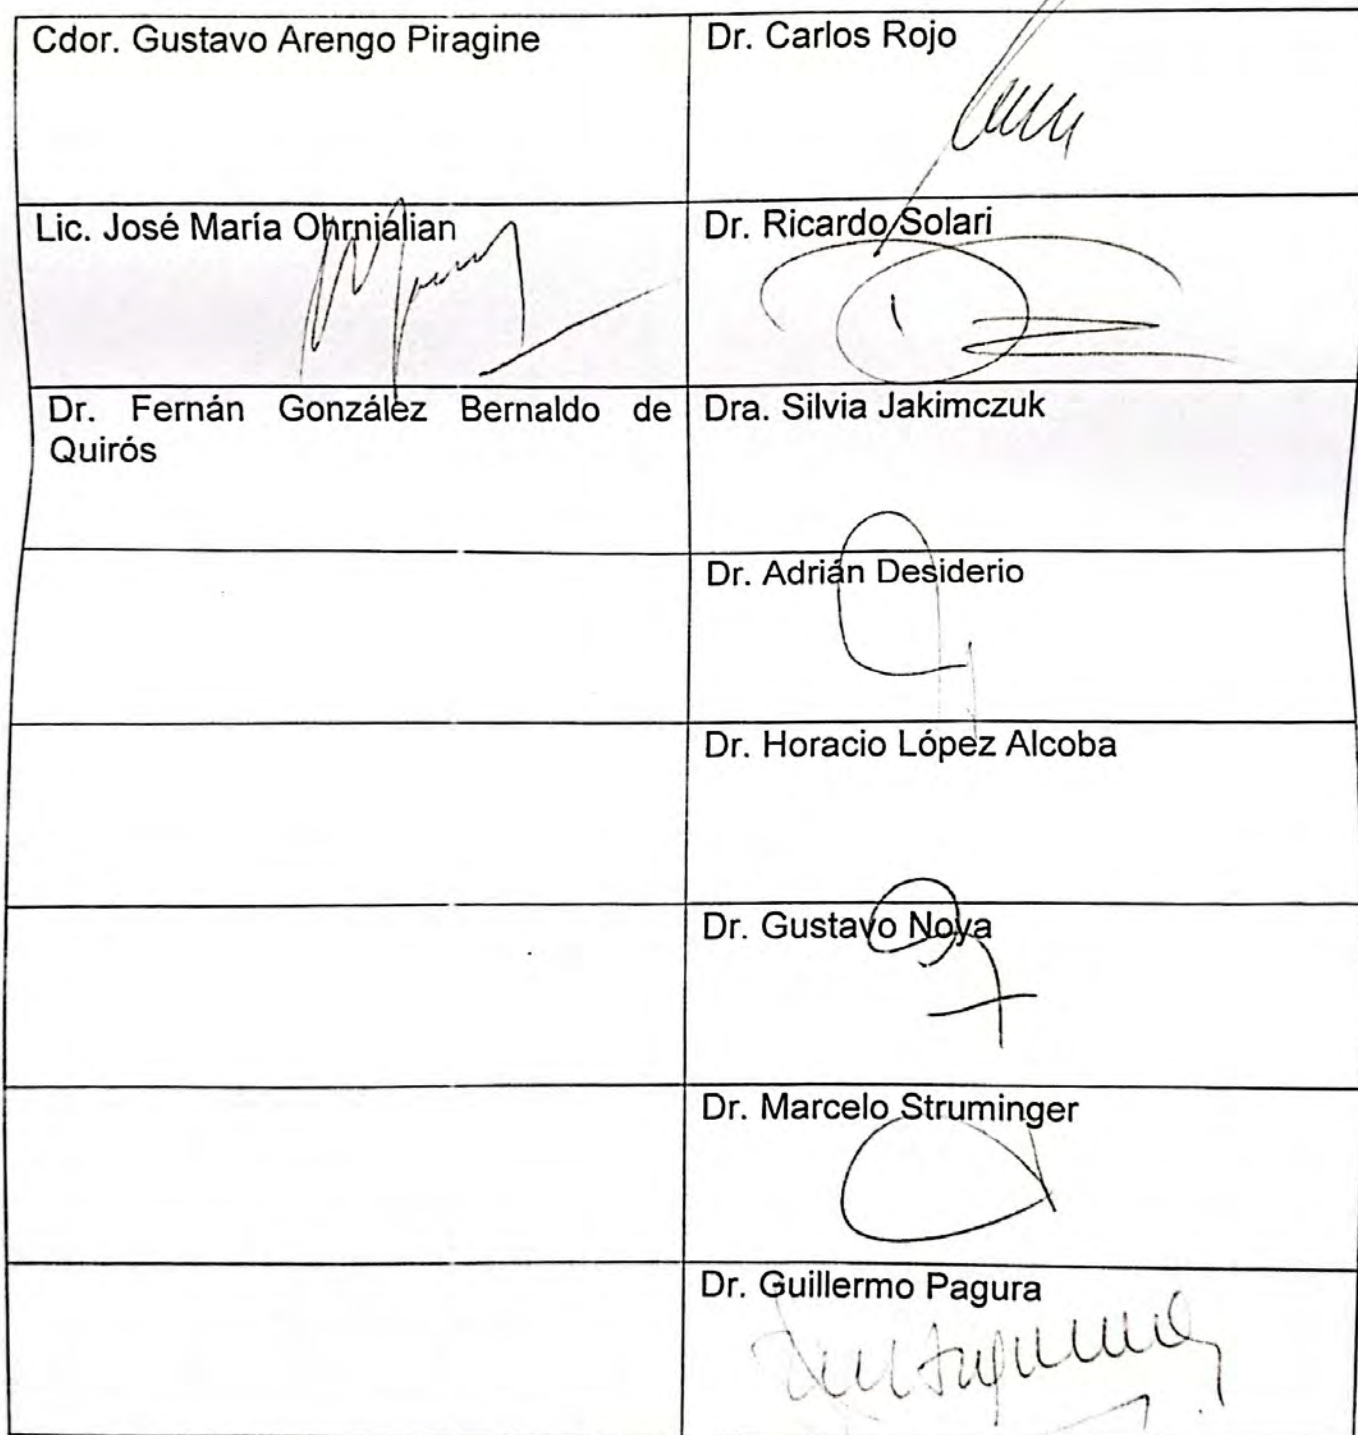 Cdor. Gustavo Arengo Piragine
Dr. Carlos Rojo
Lic. José María Ohrnialian
Dr. Ricardo Solari
Dr. Fernán González Bernaldo de
Quirós
Dra. Silvia Jakimczuk
Dr. Adrián Desiderio
Dr. Horacio López Alcoba
Dr. Gustavo Noya
Dr. Marcelo Struminger
Dr. Guillermo Pagura